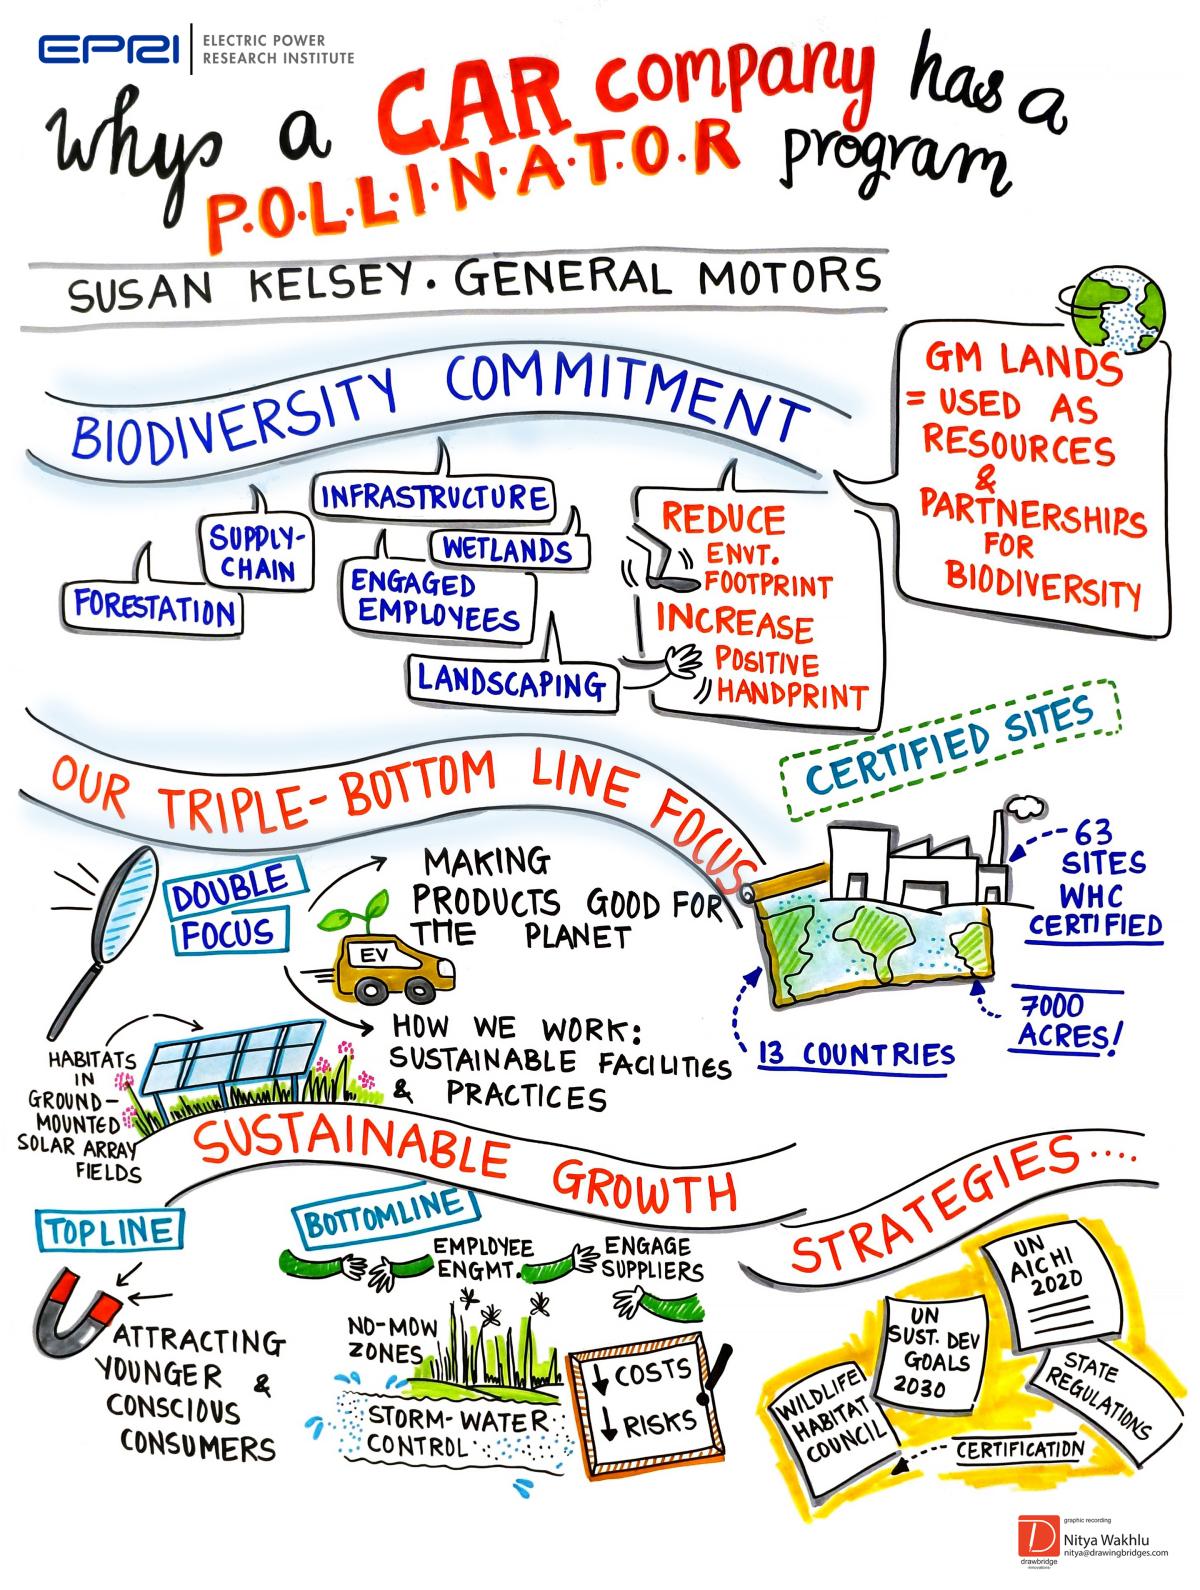 EPRI | ELECTRIC POWER
RESEARCH INSTITUTE
Whys a CAR company has a
P.O.L.L.I.N.A.T.O.R program
SUSAN KELSEY. GENERAL MOTORS
BIODIVERSITY COMMITMENT
GM LANDS
= USED AS
RESOURCES
&
PARTNERSHIPS
FOR
BIODIVERSITY
INFRASTRUCTURE
SUPPLY-
CHAIN
WETLANDS
FORESTATION
ENGAGED
EMPLOYEES
LANDSCAPING
REDUCE
ENVT.
FOOTPRINT
INCREASE
POSITIVE
HANDPRINT
OUR TRIPLE-BOTTOM LINE FOCUS
CERTIFIED SITES
63
SITES
WHC
CERTIFIED
7000
ACRES!
13 COUNTRIES
DOUBLE
FOCUS
MAKING
PRODUCTS GOOD FOR
THE PLANET
EV
HOW WE WORK:
SUSTAINABLE FACILITIES
& PRACTICES
HABITATS
IN
GROUND-
MOUNTED
SOLAR ARRAY
FIELDS
SUSTAINABLE GROWTH
STRATEGIES....
TOPLINE
ATTRACTING
YOUNGER &
CONSCIOUS
CONSUMERS
BOTTOMLINE
EMPLOYEE
ENGMT.
ENGAGE
SUPPLIERS
NO-MOW
ZONES
STORM-WATER
CONTROL
↓ COSTS
↓ RISKS
UN
AICHI
2020
UN
SUST. DEV
GOALS
2030
STATE
REGULATIONS
WILDLIFE
HABITAT
COUNCIL
CERTIFICATION
graphic recording
Nitya Wakhlu
nitya@drawingbridges.com
drawbridge
innovations